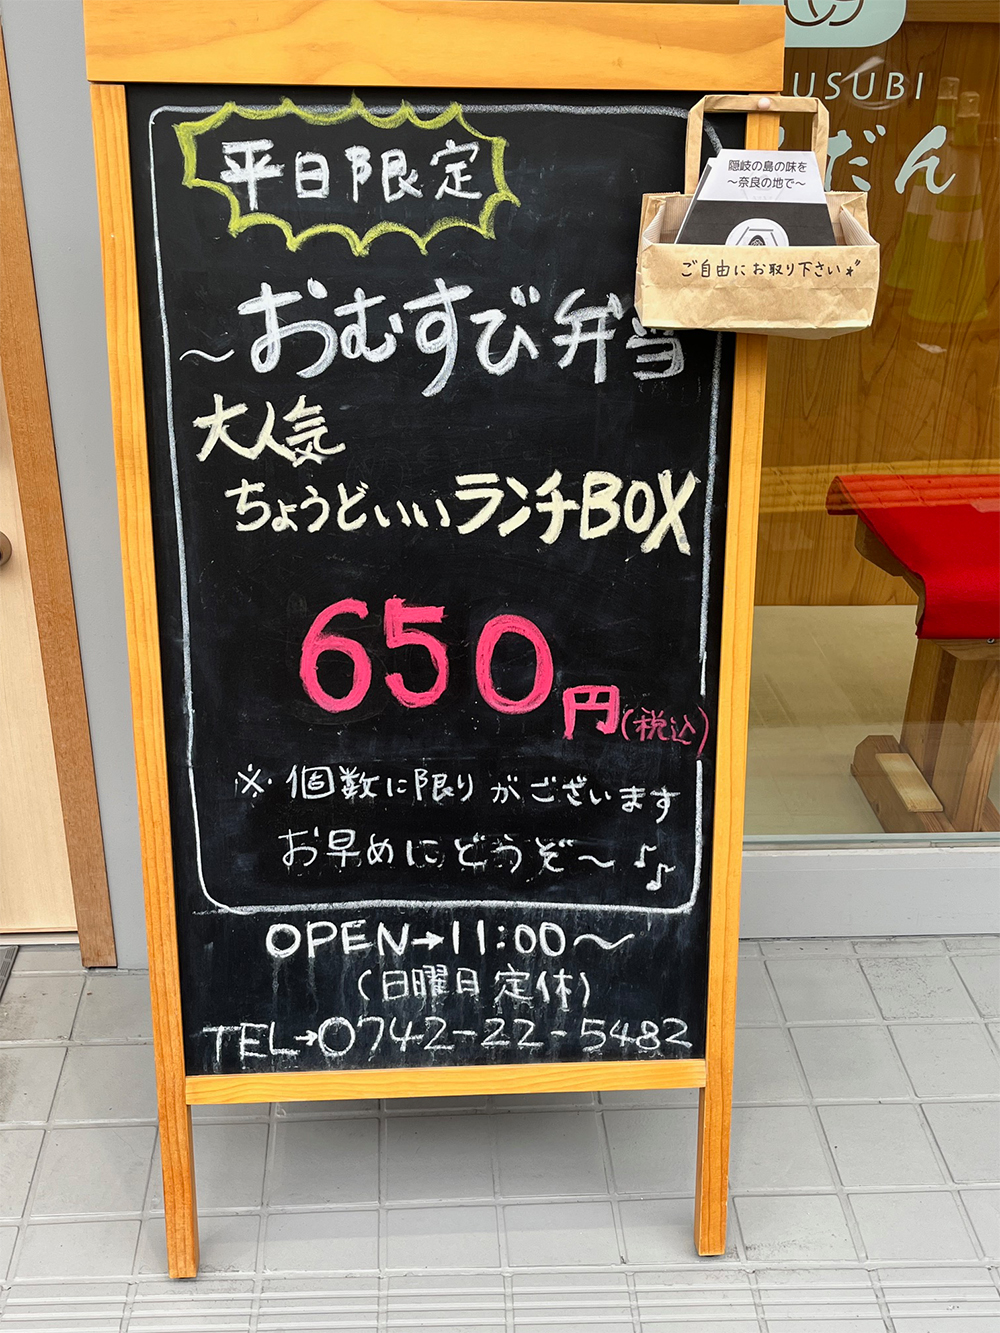 平日限定
～おむすび弁当
大人気
ちょうどいいランチBOX
650円(税込)
※個数に限りがございます
お早めにどうぞ～♪♪
OPEN→11:00～
(日曜日定休)
TEL→0742-22-5482
隠岐の島の味を
～奈良の地で～
ご自由にお取り下さい
USUBI
だん